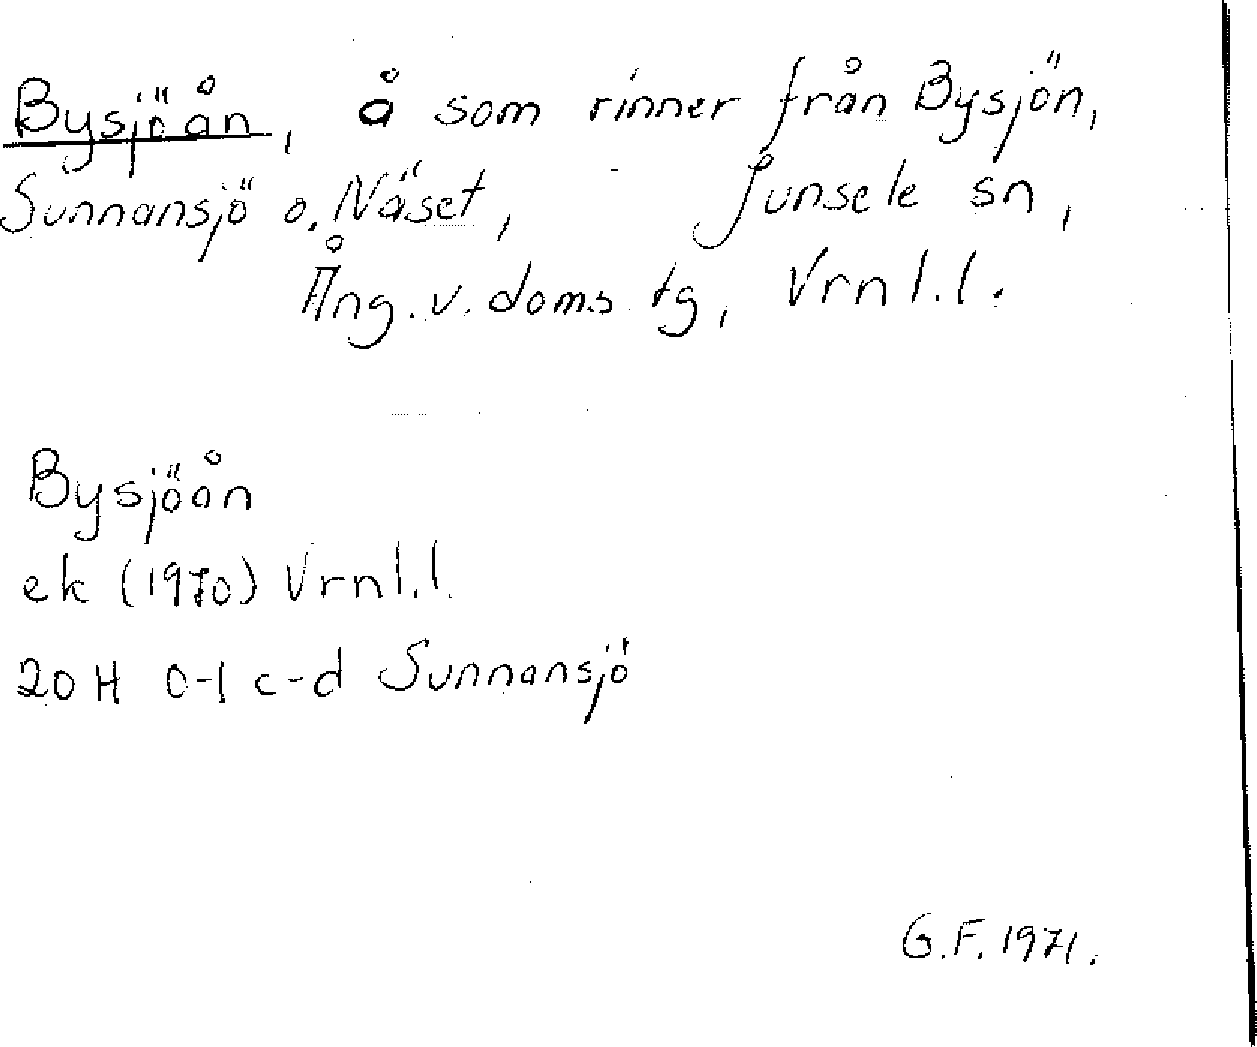 Bysjöån, å som rinner från Bysjön,
Sunnansjö o. Näset, Junsele sn,
Ång. v. doms. tg, Vrnl.l.
Bysjöån
ek (1970) Vrnl.l.
20 H 0-1 c-d Sunnansjö
G.F. 1971.